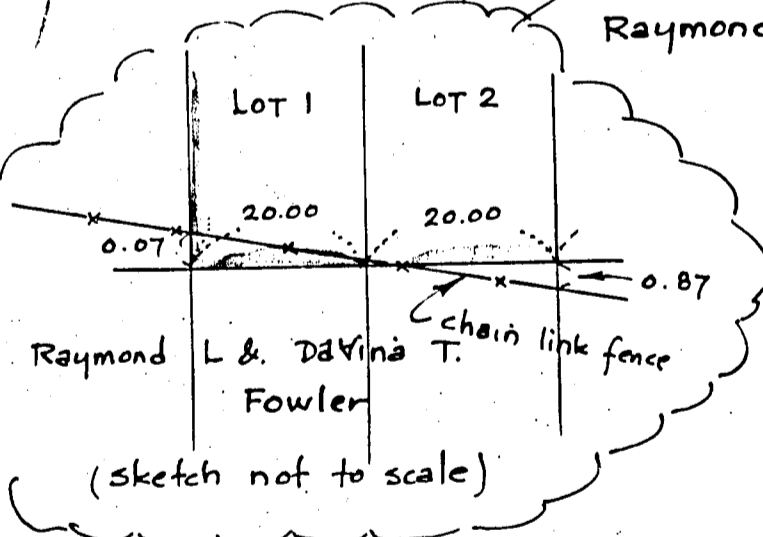 Raymond
LOT 1
LOT 2
20.00
20.00
0.07
0.87
chain link fence
Raymond L &. Davina T.
Fowler
(sketch not to scale)